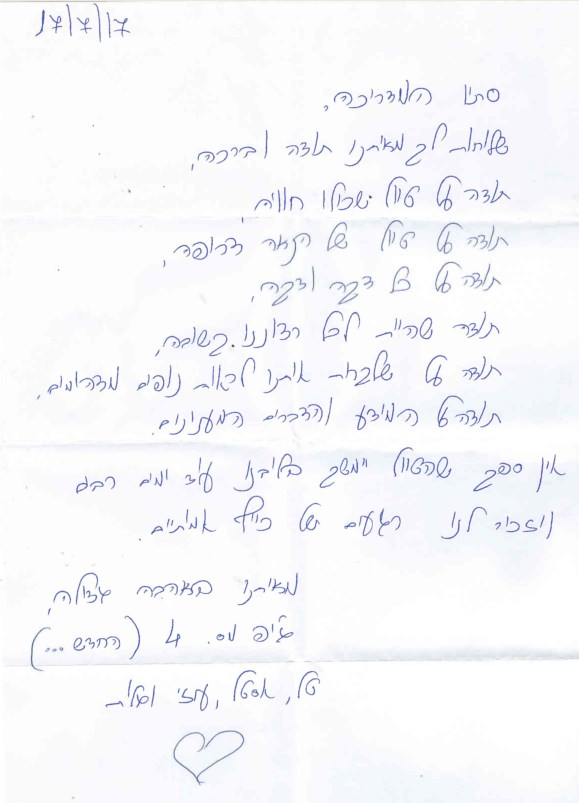 17/7/17
סתיו המדריכה,
שולחות לך מאיתנו תודה וברכה,
תודה על טיול שכולו חוויה,
תודה על טיול של הנאה צרופה,
תודה על כל דקה ודקה,
תודה שהיית לכל רצוננו קשובה,
תודה על שלקחת איתנו לראות נופים מדהימים,
תודה על המידע והדברים המעניינים.
אין ספק שהטיול יימשך בליבנו עוד ימים רבים
ויזכיר לנו רגעים של כייף אמיתיים.
מאיתנו באהבה גדולה,
ג'יפ מס. 4 (החדש...)
טל, אסטל, עוזי